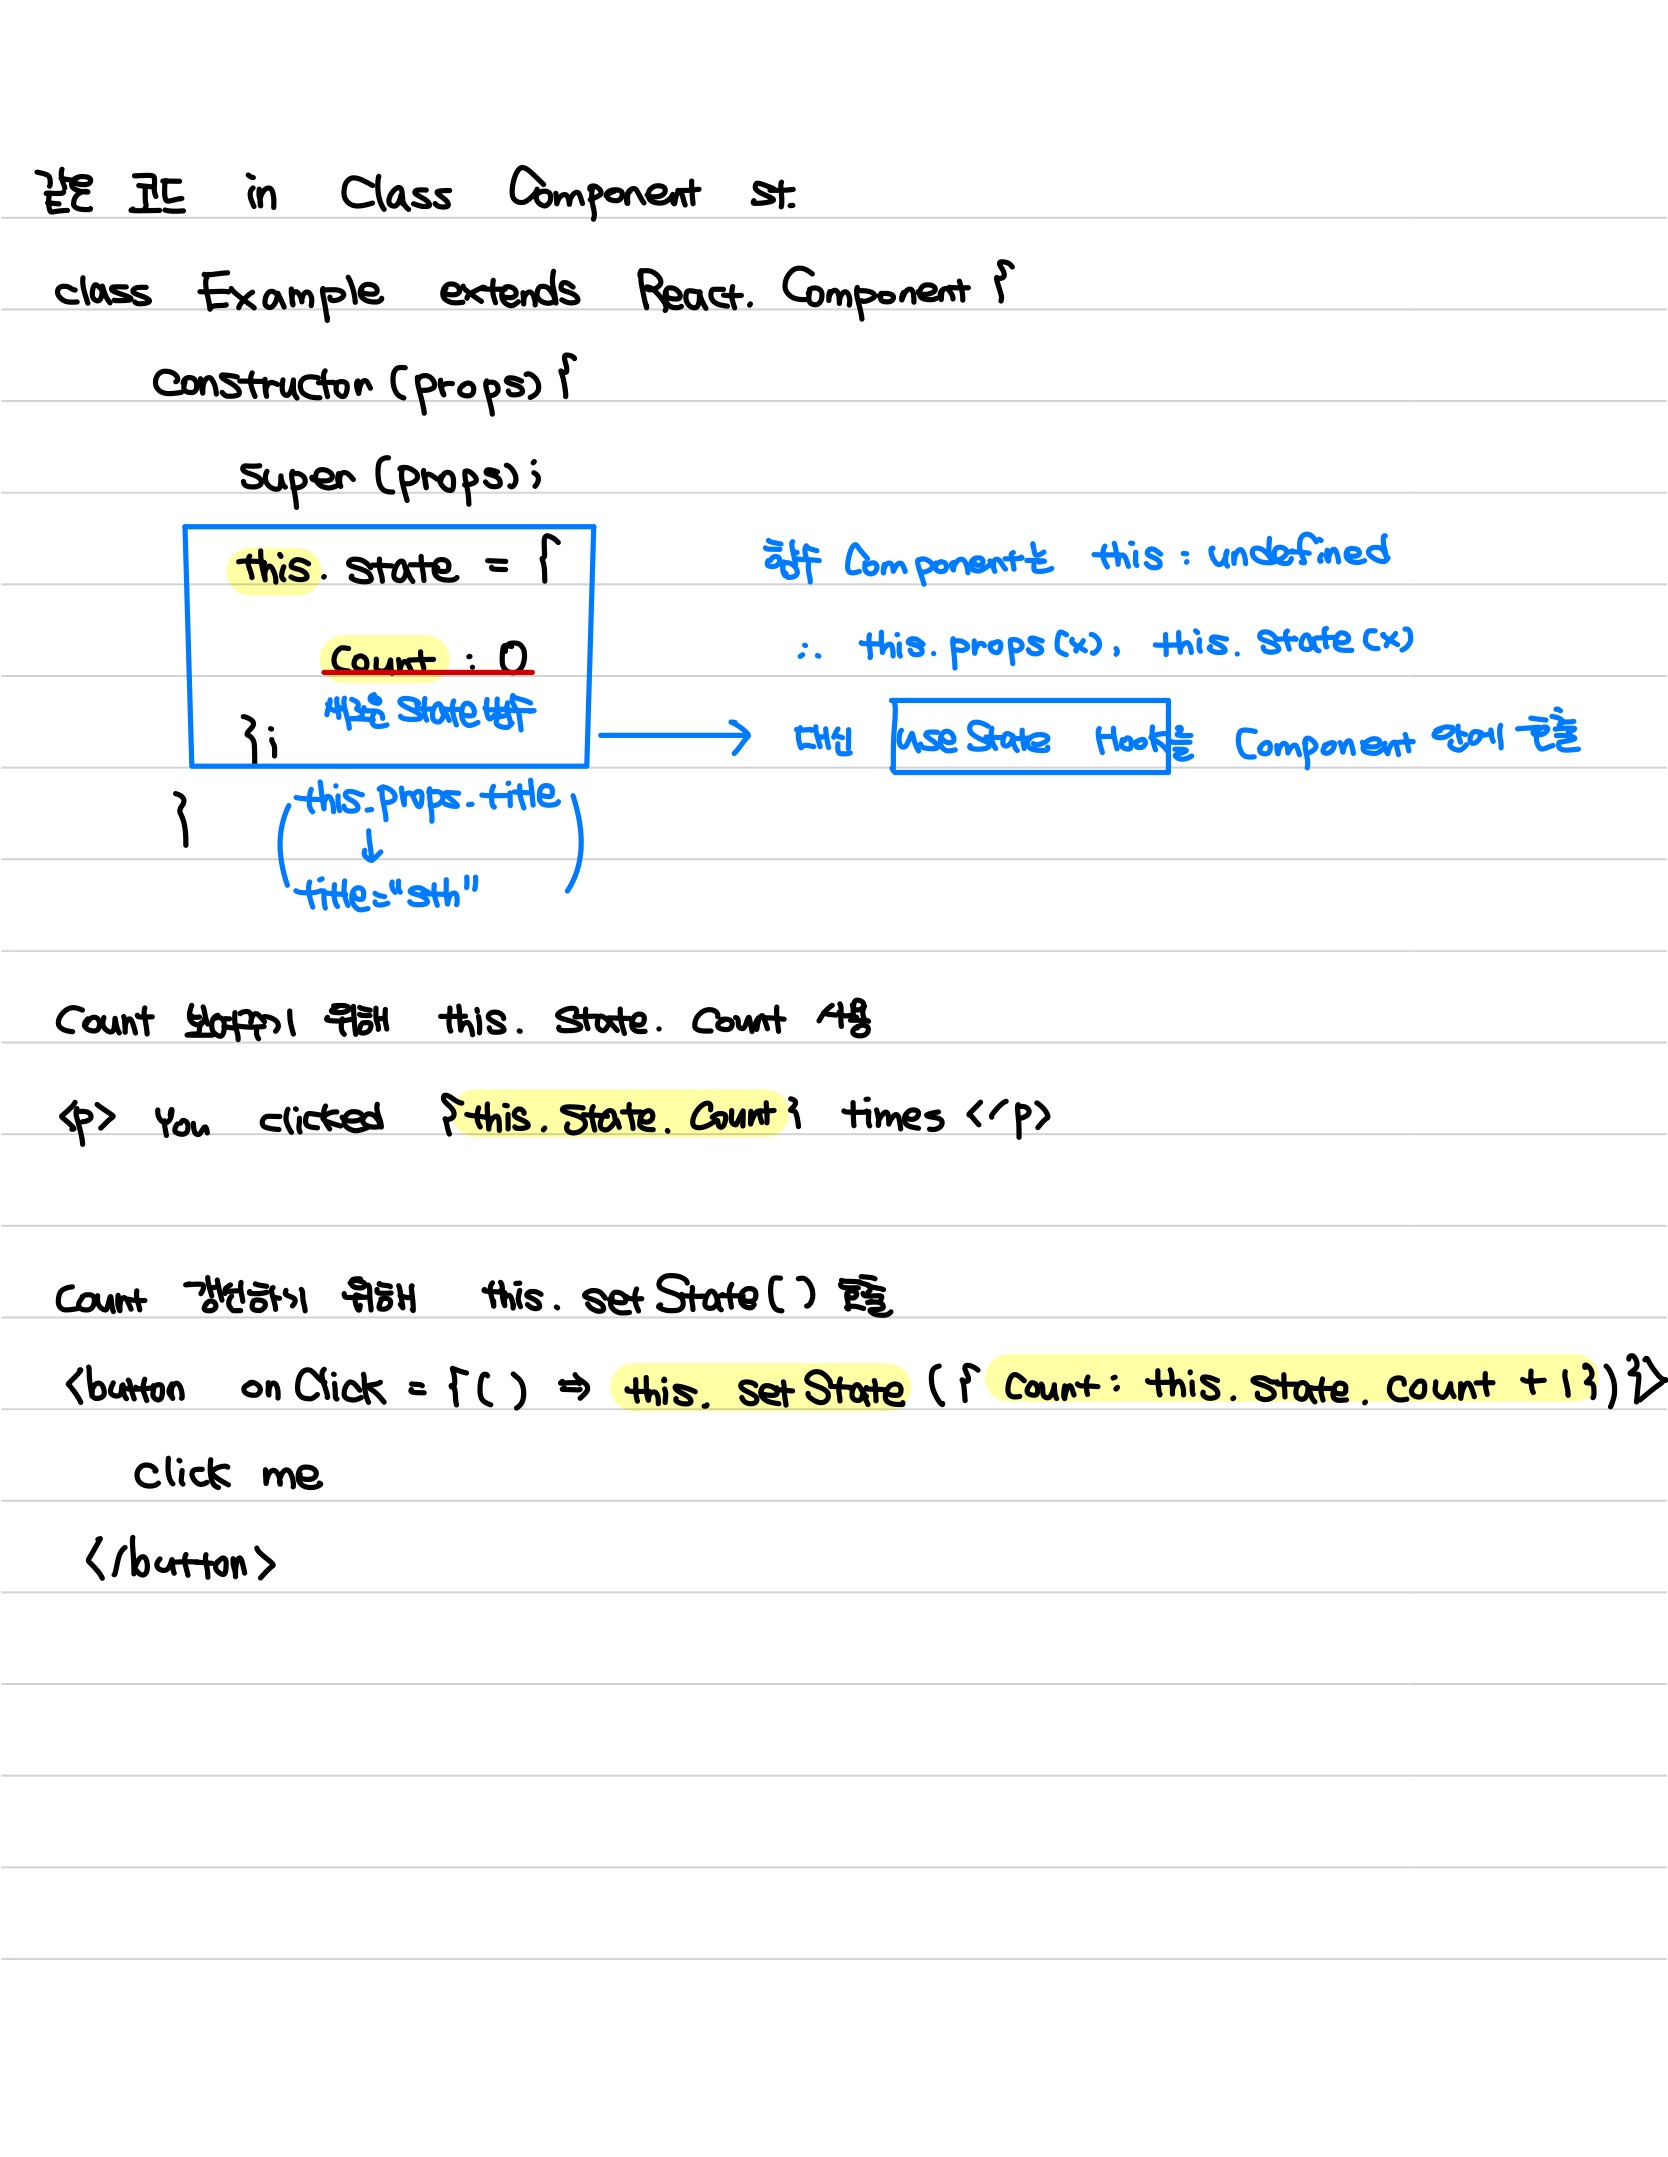 같은 코드 in Class Component st.
class Example extends React. Component {
constructor (props) {
super (props);
this. state = {
함수 Component는 this : undefined
count : 0
∴ this.props(x), this.state(x)
새로운 state 변수
};
대신 use State Hook을 Component 안에 호출
}
this.props.title
↓
title="sth"
Count 보여주기 위해 this. state. count 사용
<p> You clicked {this. state. count} times </p>
Count 갱신하기 위해 this. set State( ) 호출
<button on Click = {( ) => this. set State ({ count: this. state. count + 1 })}>
click me
</button>